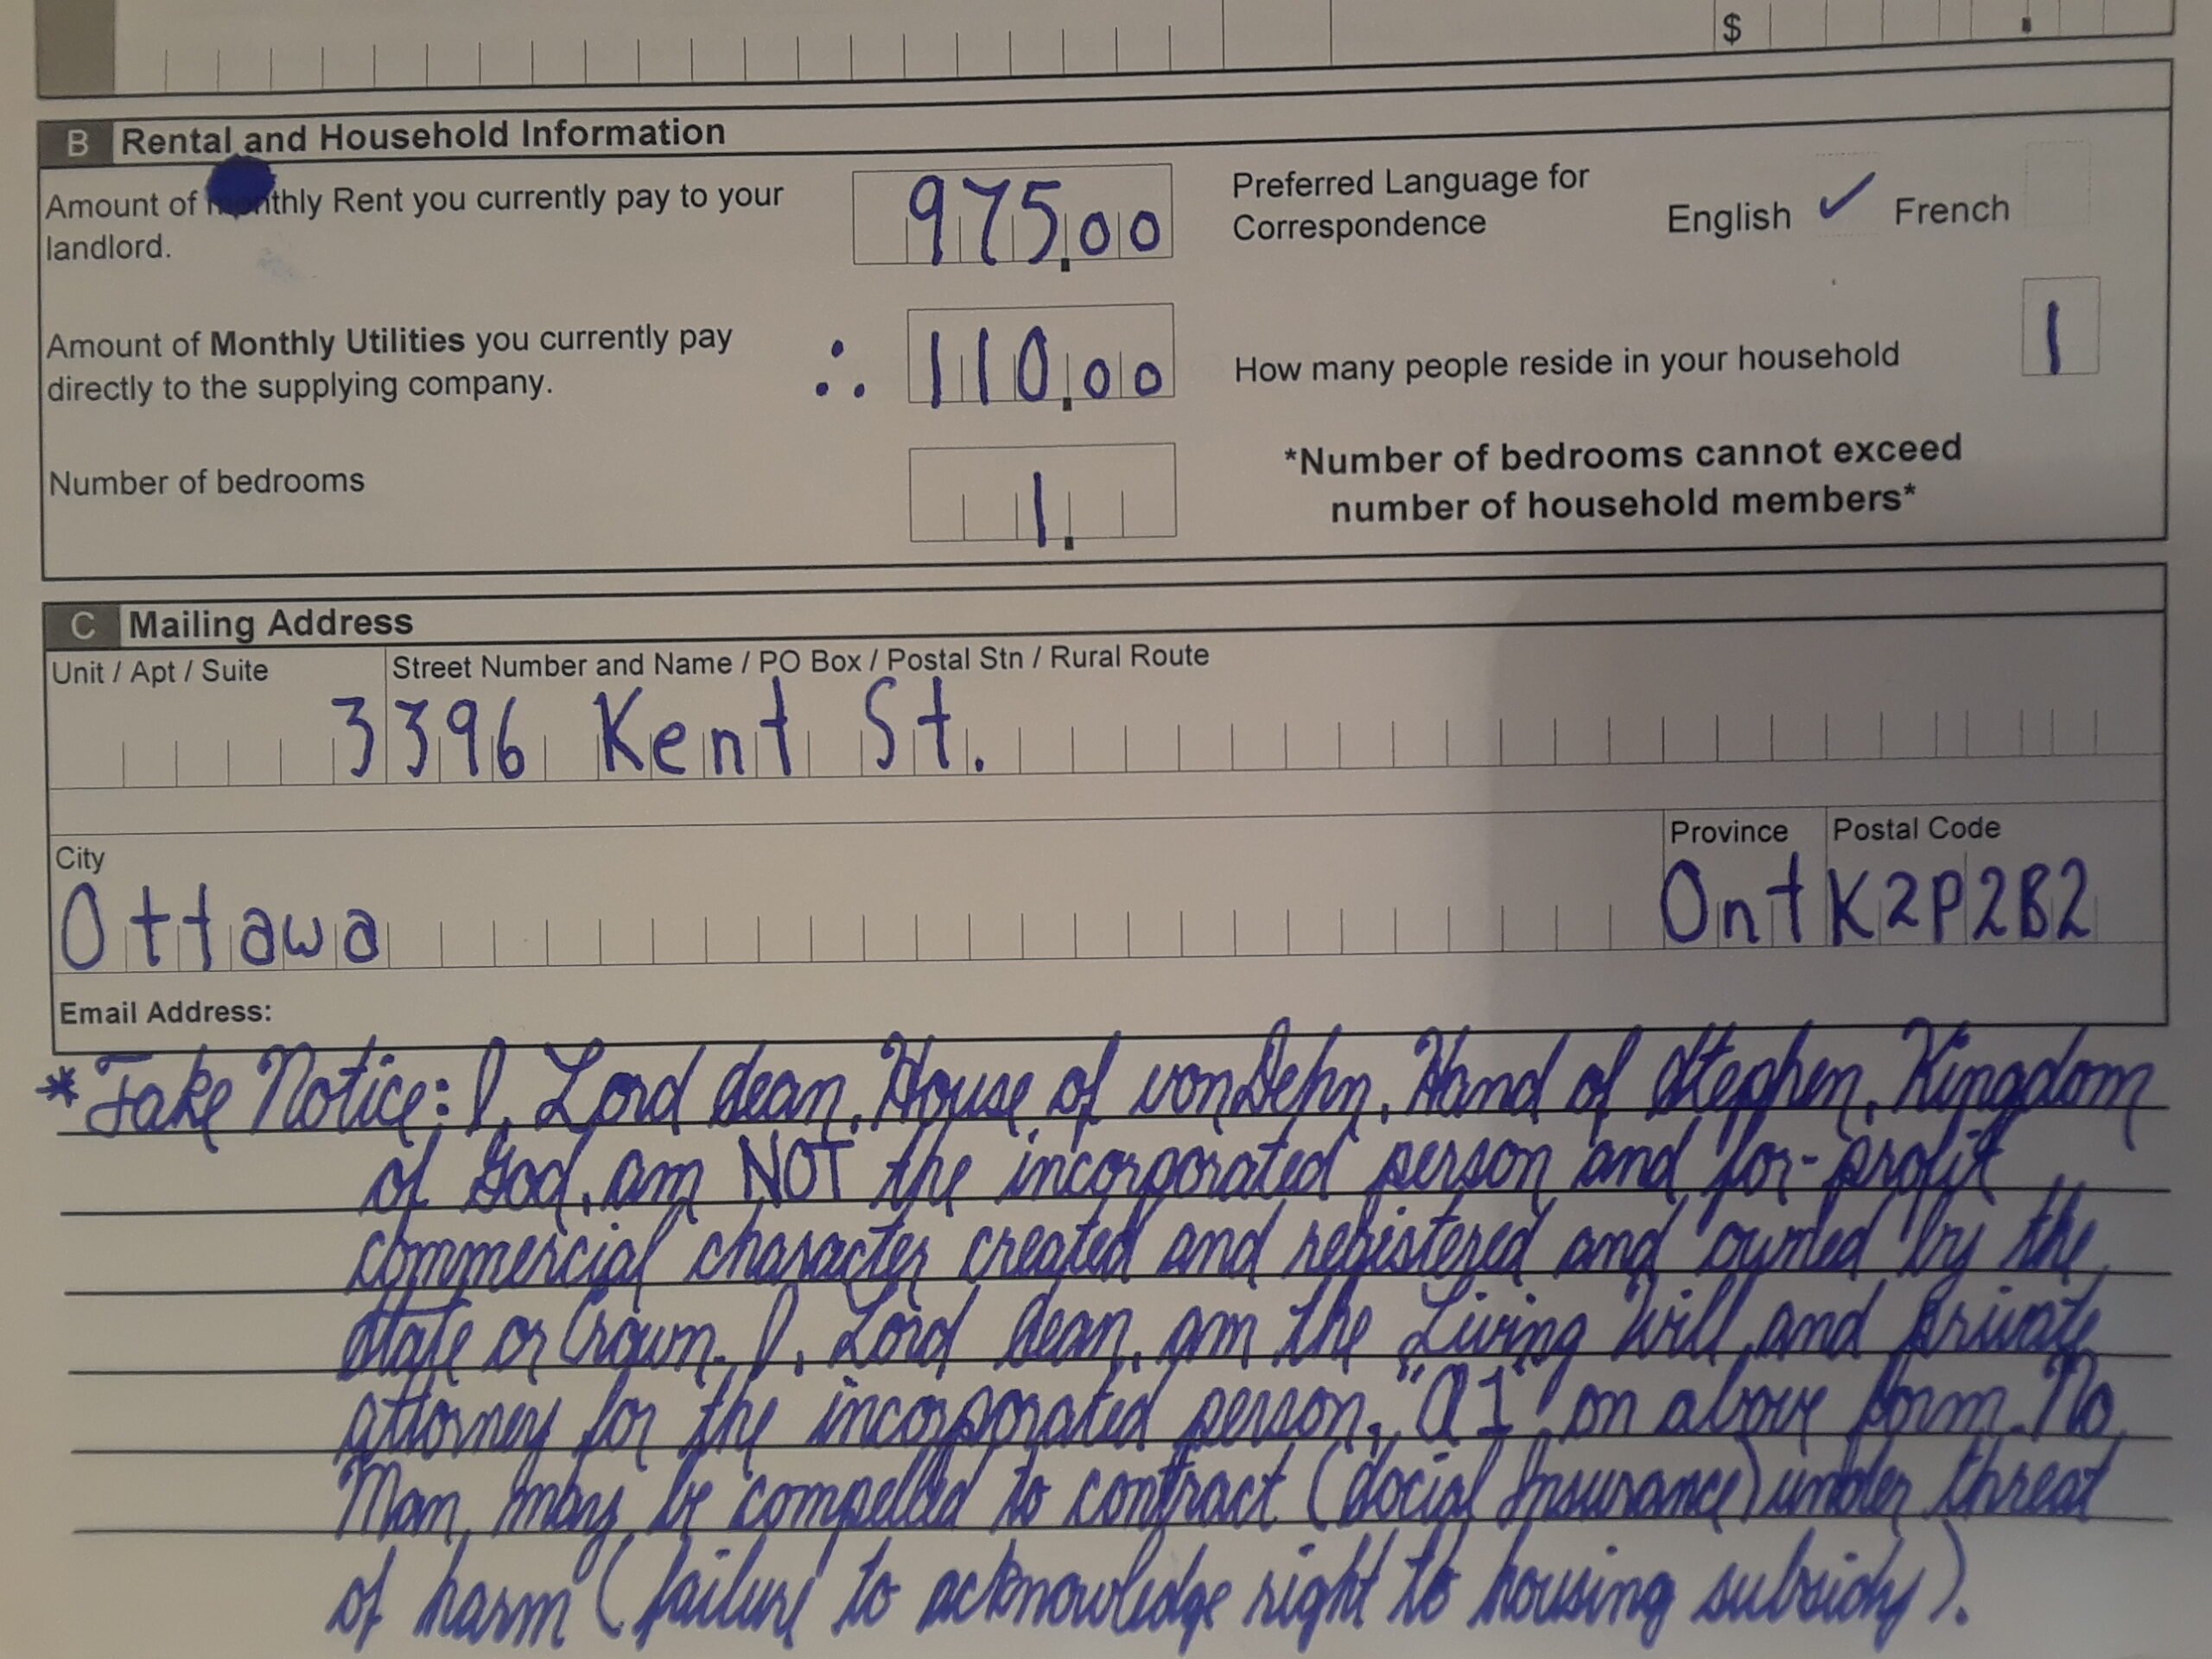 $ .
B Rental and Household Information
Amount of monthly Rent you currently pay to your landlord.
975.00
Preferred Language for Correspondence
English ✓ French
Amount of Monthly Utilities you currently pay directly to the supplying company.
∴ 110.00
How many people reside in your household
1
Number of bedrooms
1.
*Number of bedrooms cannot exceed
number of household members*
C Mailing Address
Unit / Apt / Suite Street Number and Name / PO Box / Postal Stn / Rural Route
3 396 Kent St.
City Province Postal Code
Ottawa Ont K2P2B2
Email Address:
* Take Notice: I, Lord dean, House of vonDehn, Hand of Stephen, Kingdom
of God, am NOT the incorporated person and for-profit
commercial character created and registered and owned by the
State or Crown. I, Lord dean, am the Living Will and private
attorney for the incorporated person, "A1" on above form. No
Man may be compelled to contract (Social Insurance) under threat
of harm (failure to acknowledge right to housing subsidy).